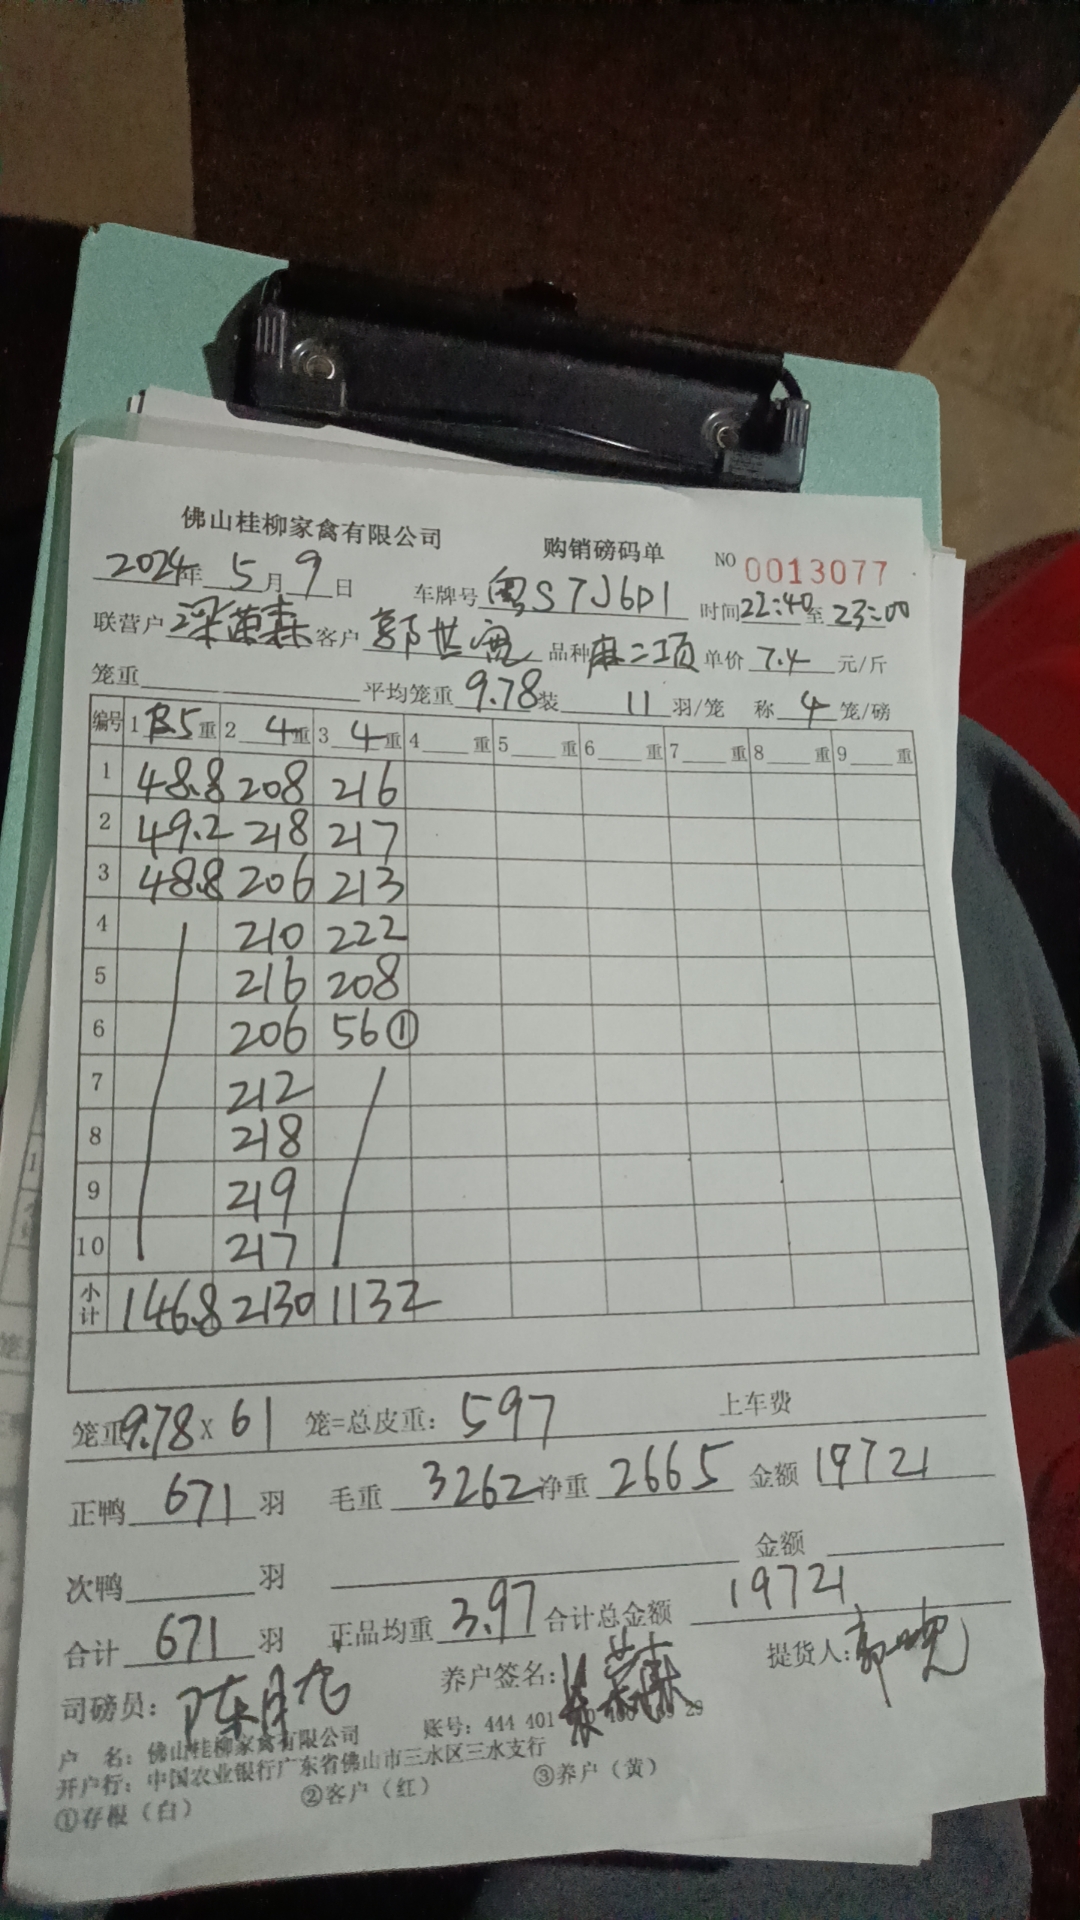 佛山桂柳家禽有限公司 购销磅码单 NO 0013077
2024年 5月 9日 车牌号 粤S7J6D1 时间22:40至23:00
联营户 客户 郭世 品种麻二项 单价 7.4 元/斤
笼重 平均笼重 9.78 装 11 羽/笼 称 4 笼/磅
编号 1 5重 2 4重 3 4重 4 重 5 重 6 重 7 重 8 重 9 重
1 48.8 208 216
2 49.2 218 217
3 48.8 206 213
4 210 222
5 216 208
6 206 56①
7 212
8 218
9 219
10 217
小计 146.8 2130 1132
笼重9.78 X 61 笼=总皮重: 597 上车费
正鸭 671 羽 毛重 3262 净重 2665 金额 19721
次鸭 羽 金额
合计 671 羽 正品均重 3.97 合计总金额 19721
司磅员: 陈 养户签名: 提货人:郭
户 名: 佛山桂柳家禽有限公司 账号: 444 401 29
开户行: 中国农业银行广东省佛山市三水区三水支行
①存根（白） ②客户（红） ③养户（黄）